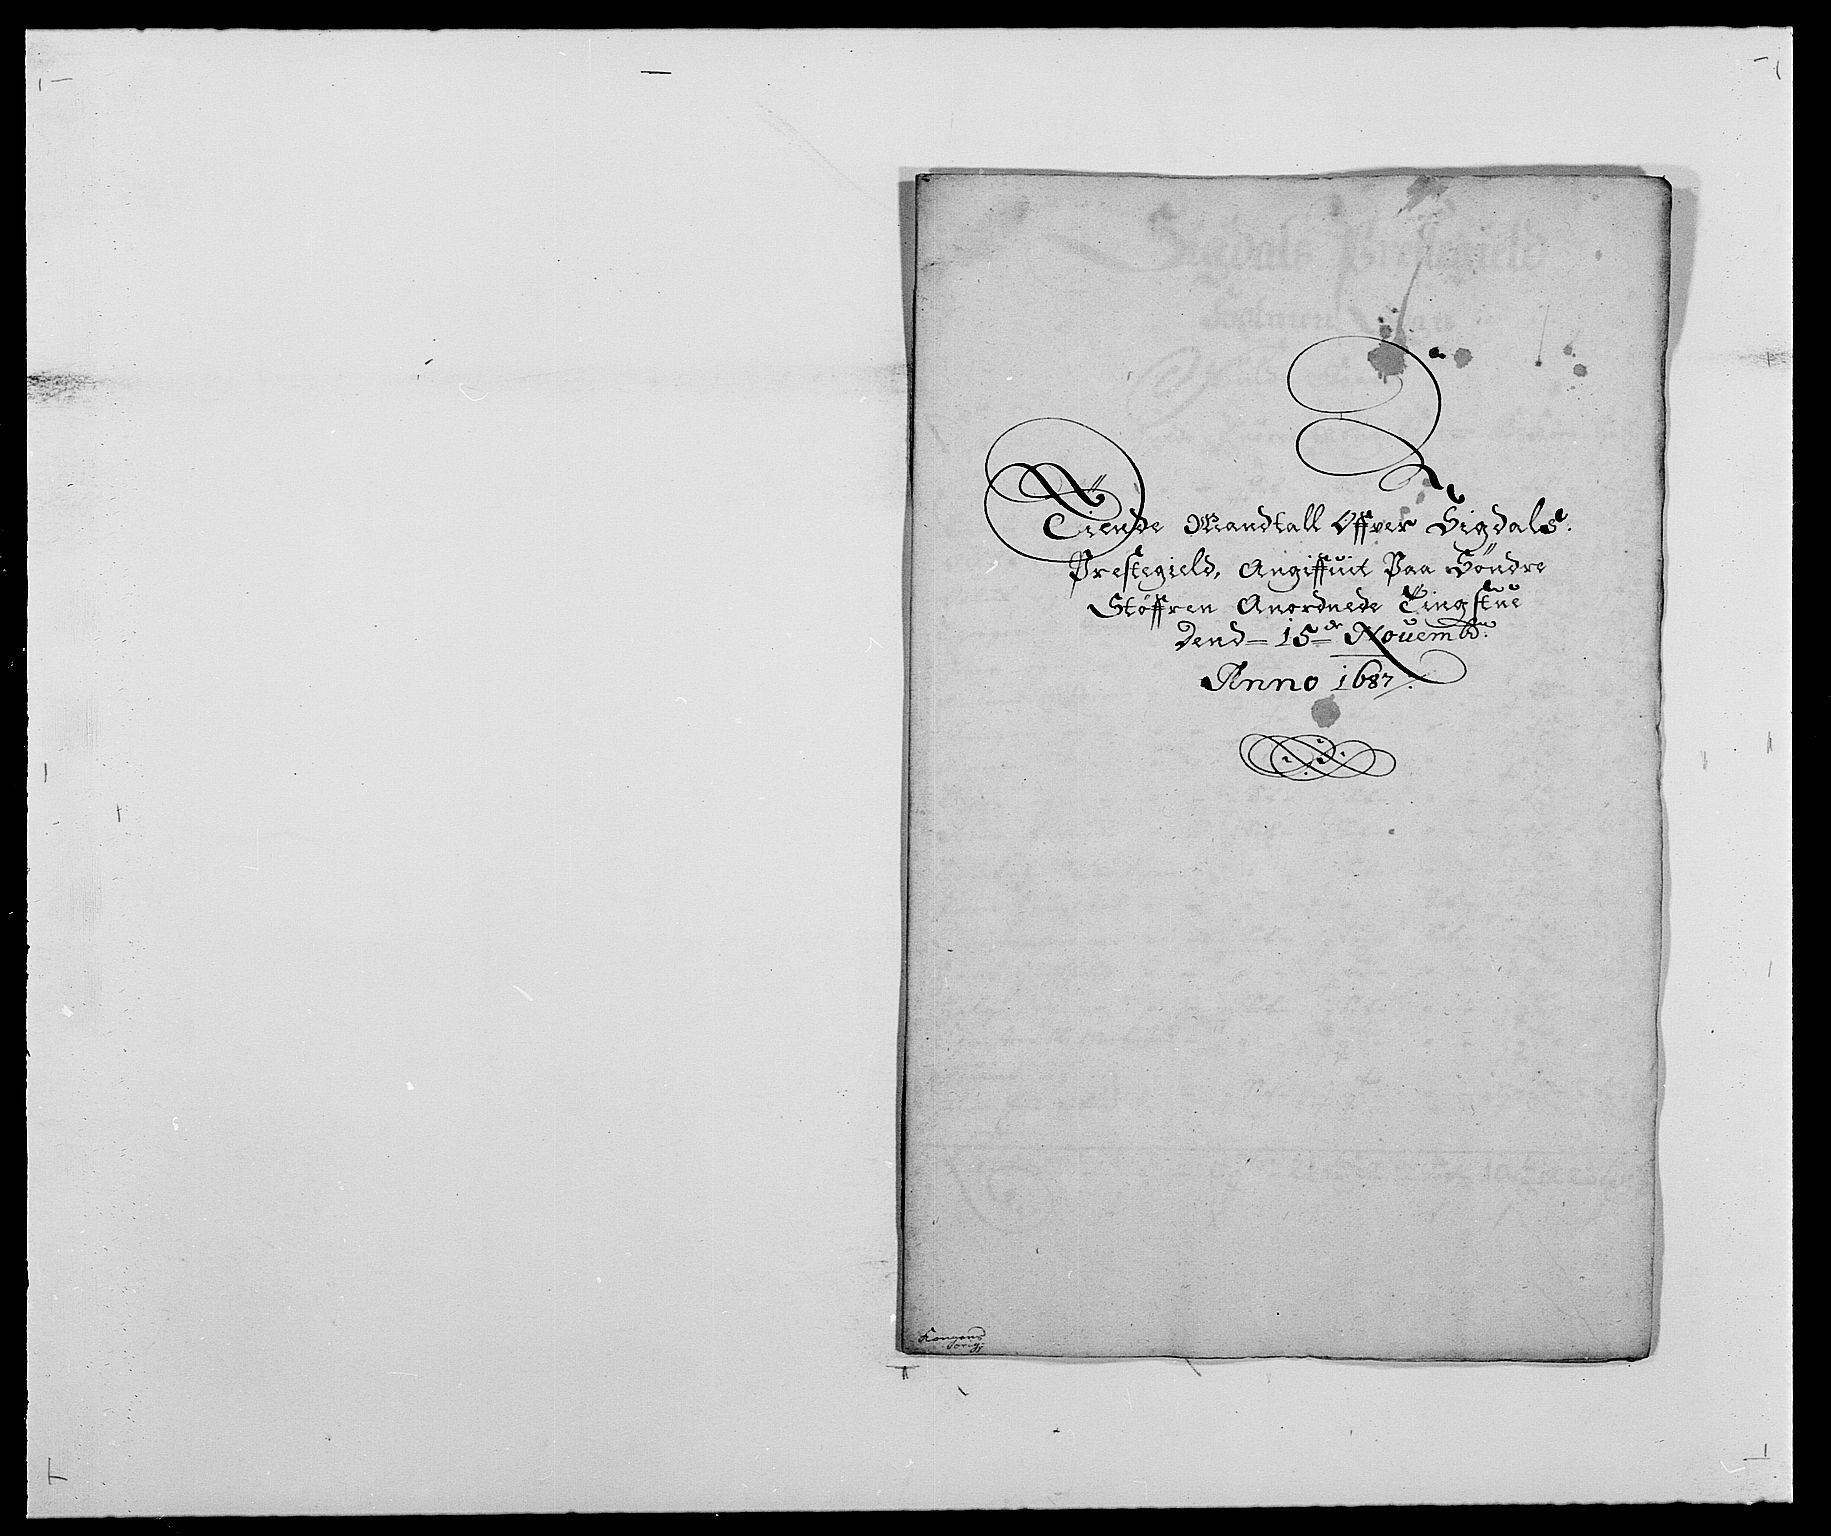 Tiende Mandtall Offver Sigdals.
Prestegield, Angiffuit Paa Söndre
Støffren Anordnede Tingstue
Dend 15de Novembr:
Anno 1687/: